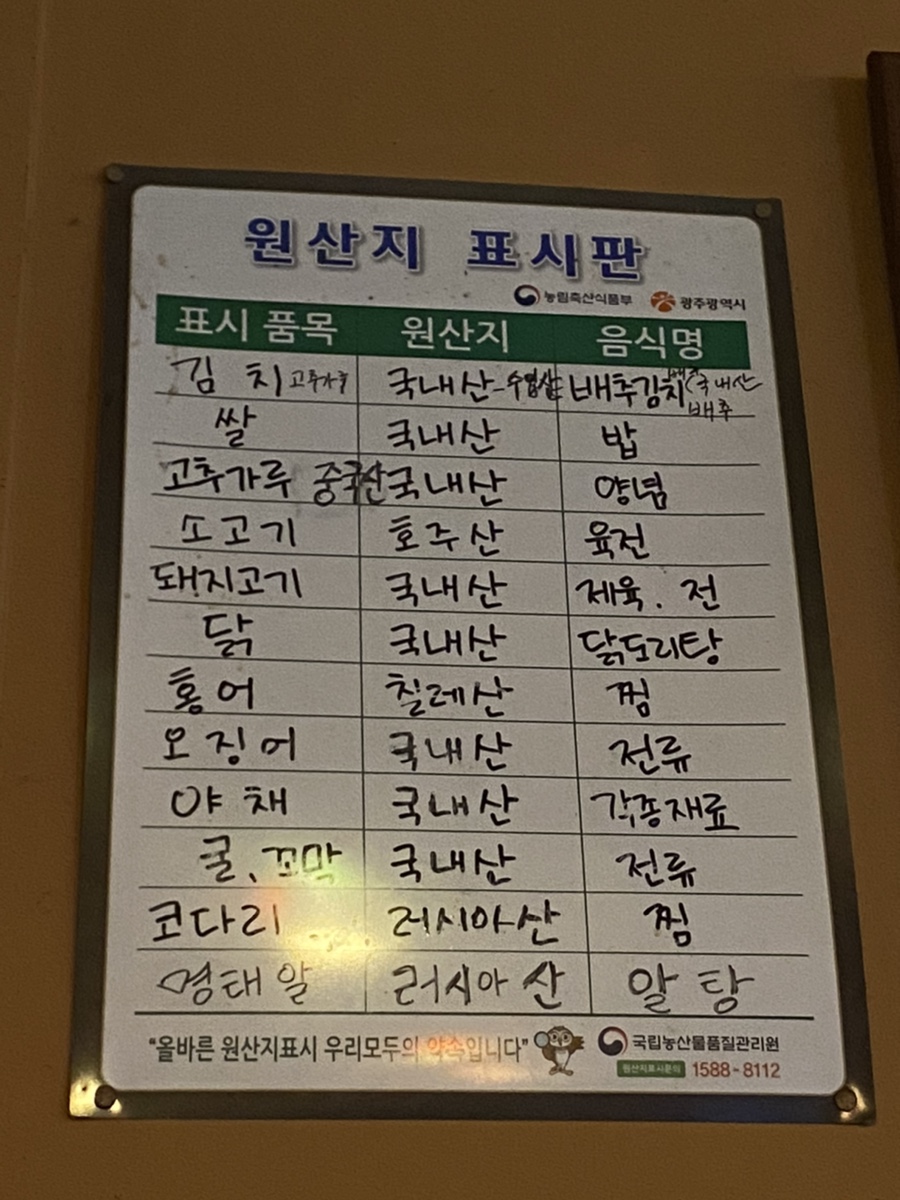 원산지 표시판
농림축산식품부 광주광역시
표시 품목 원산지 음식명
김 치 고추가루 국내산-수입산 배추김치(국내산
배추
쌀 국내산 밥
고추가루 중국산 국내산 양념
소고기 호주산 육전
돼지고기 국내산 제육. 전
닭 국내산 닭도리탕
홍어 칠레산 찜
오징어 국내산 전류
야채 국내산 각종재료
굴、꼬막 국내산 전류
코다리 러시아산 찜
명태알 러시아산 알탕
"올바른 원산지표시 우리모두의 약속입니다" 국립농산물품질관리원
원산지표시문의 1588-8112